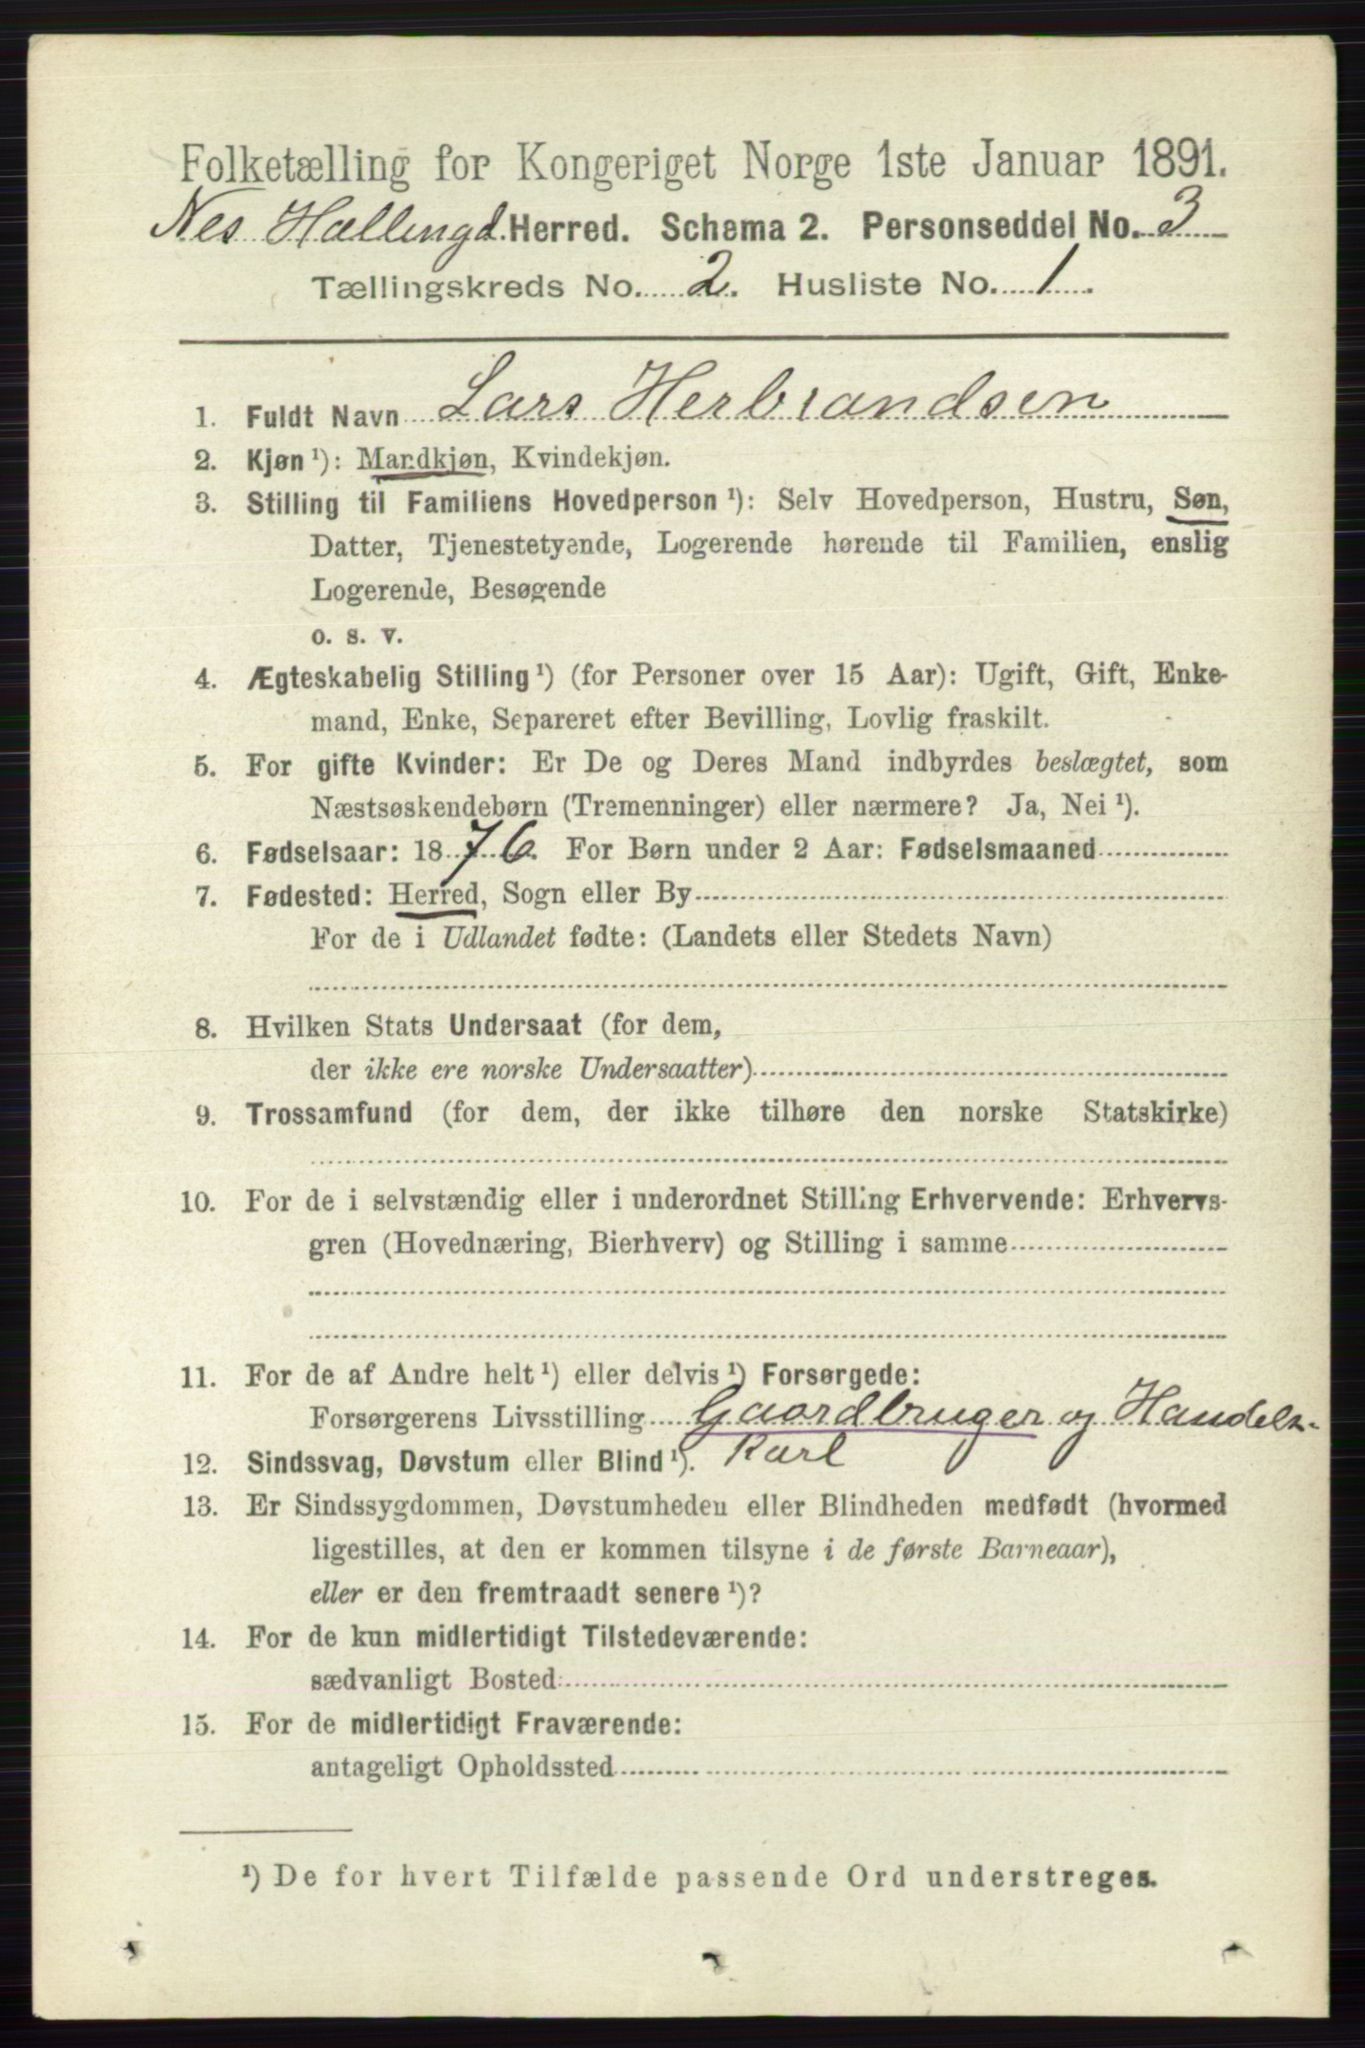 Folketælling for Kongeriget Norge 1ste Januar 1891.
Nes Hallingd. Herred. Schema 2. Personseddel No. 3
Tællingskreds No. 2. Husliste No. 1.
1. Fuldt Navn Lars Herbrandsen
2. Kjøn ¹): Mandkjøn, Kvindekjøn.
3. Stilling til Familiens Hovedperson ¹): Selv Hovedperson, Hustru, Søn,
Datter, Tjenestetyende, Logerende hørende til Familien, enslig
Logerende, Besøgende
o. s. v.
4. Ægteskabelig Stilling ¹) (for Personer over 15 Aar): Ugift, Gift, Enke-
mand, Enke, Separeret efter Bevilling, Lovlig fraskilt.
5. For gifte Kvinder: Er De og Deres Mand indbyrdes beslægtet, som
Næstsøskendebørn (Tremenninger) eller nærmere? Ja, Nei ¹).
6. Fødselsaar: 1876. For Børn under 2 Aar: Fødselsmaaned
7. Fødested: Herred, Sogn eller By
For de i Udlandet fødte: (Landets eller Stedets Navn)
8. Hvilken Stats Undersaat (for dem,
der ikke ere norske Undersaatter)
9. Trossamfund (for dem, der ikke tilhøre den norske Statskirke)
10. For de i selvstændig eller i underordnet Stilling Erhvervende: Erhvervs-
gren (Hovednæring, Bierhverv) og Stilling i samme
11. For de af Andre helt ¹) eller delvis ¹) Forsørgede:
Forsørgerens Livsstilling Gaardbruger og Handels-
Karl
12. Sindssvag, Døvstum eller Blind ¹).
13. Er Sindssygdommen, Døvstumheden eller Blindheden medfødt (hvormed
ligestilles, at den er kommen tilsyne i de første Barneaar),
eller er den fremtraadt senere ¹)?
14. For de kun midlertidigt Tilstedeværende:
sædvanligt Bosted
15. For de midlertidigt Fraværende:
antageligt Opholdssted
¹) De for hvert Tilfælde passende Ord understreges.